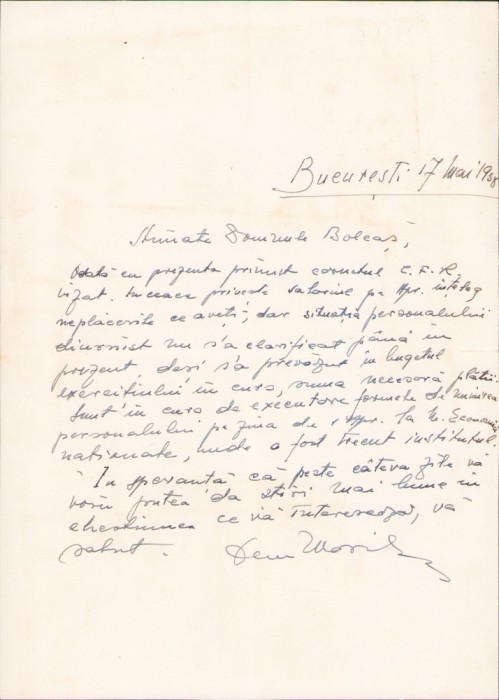 București 17 mai 1938
Stimate Domnule Bolcaș,
Odată cu prezenta primiți carnetul C.F.R.
vizat. În ceea ce privește salariul pe Apr. înțeleg
neplăcerile ce aveți, dar situația personalului
diurnist nu s'a clarificat până în
prezent, deși s'a prevăzut în bugetul
exercițiului în curs, suma necesară plății.
Sunt în curs de executare formele de numirea
personalului pe ziua de 1 Apr. la M. Economiei
naționale, unde a fost trecut institutul.
În speranță că peste câteva zile vă
voiu putea da știri mai bune în
chestiunea ce vă interesează, vă
salut.